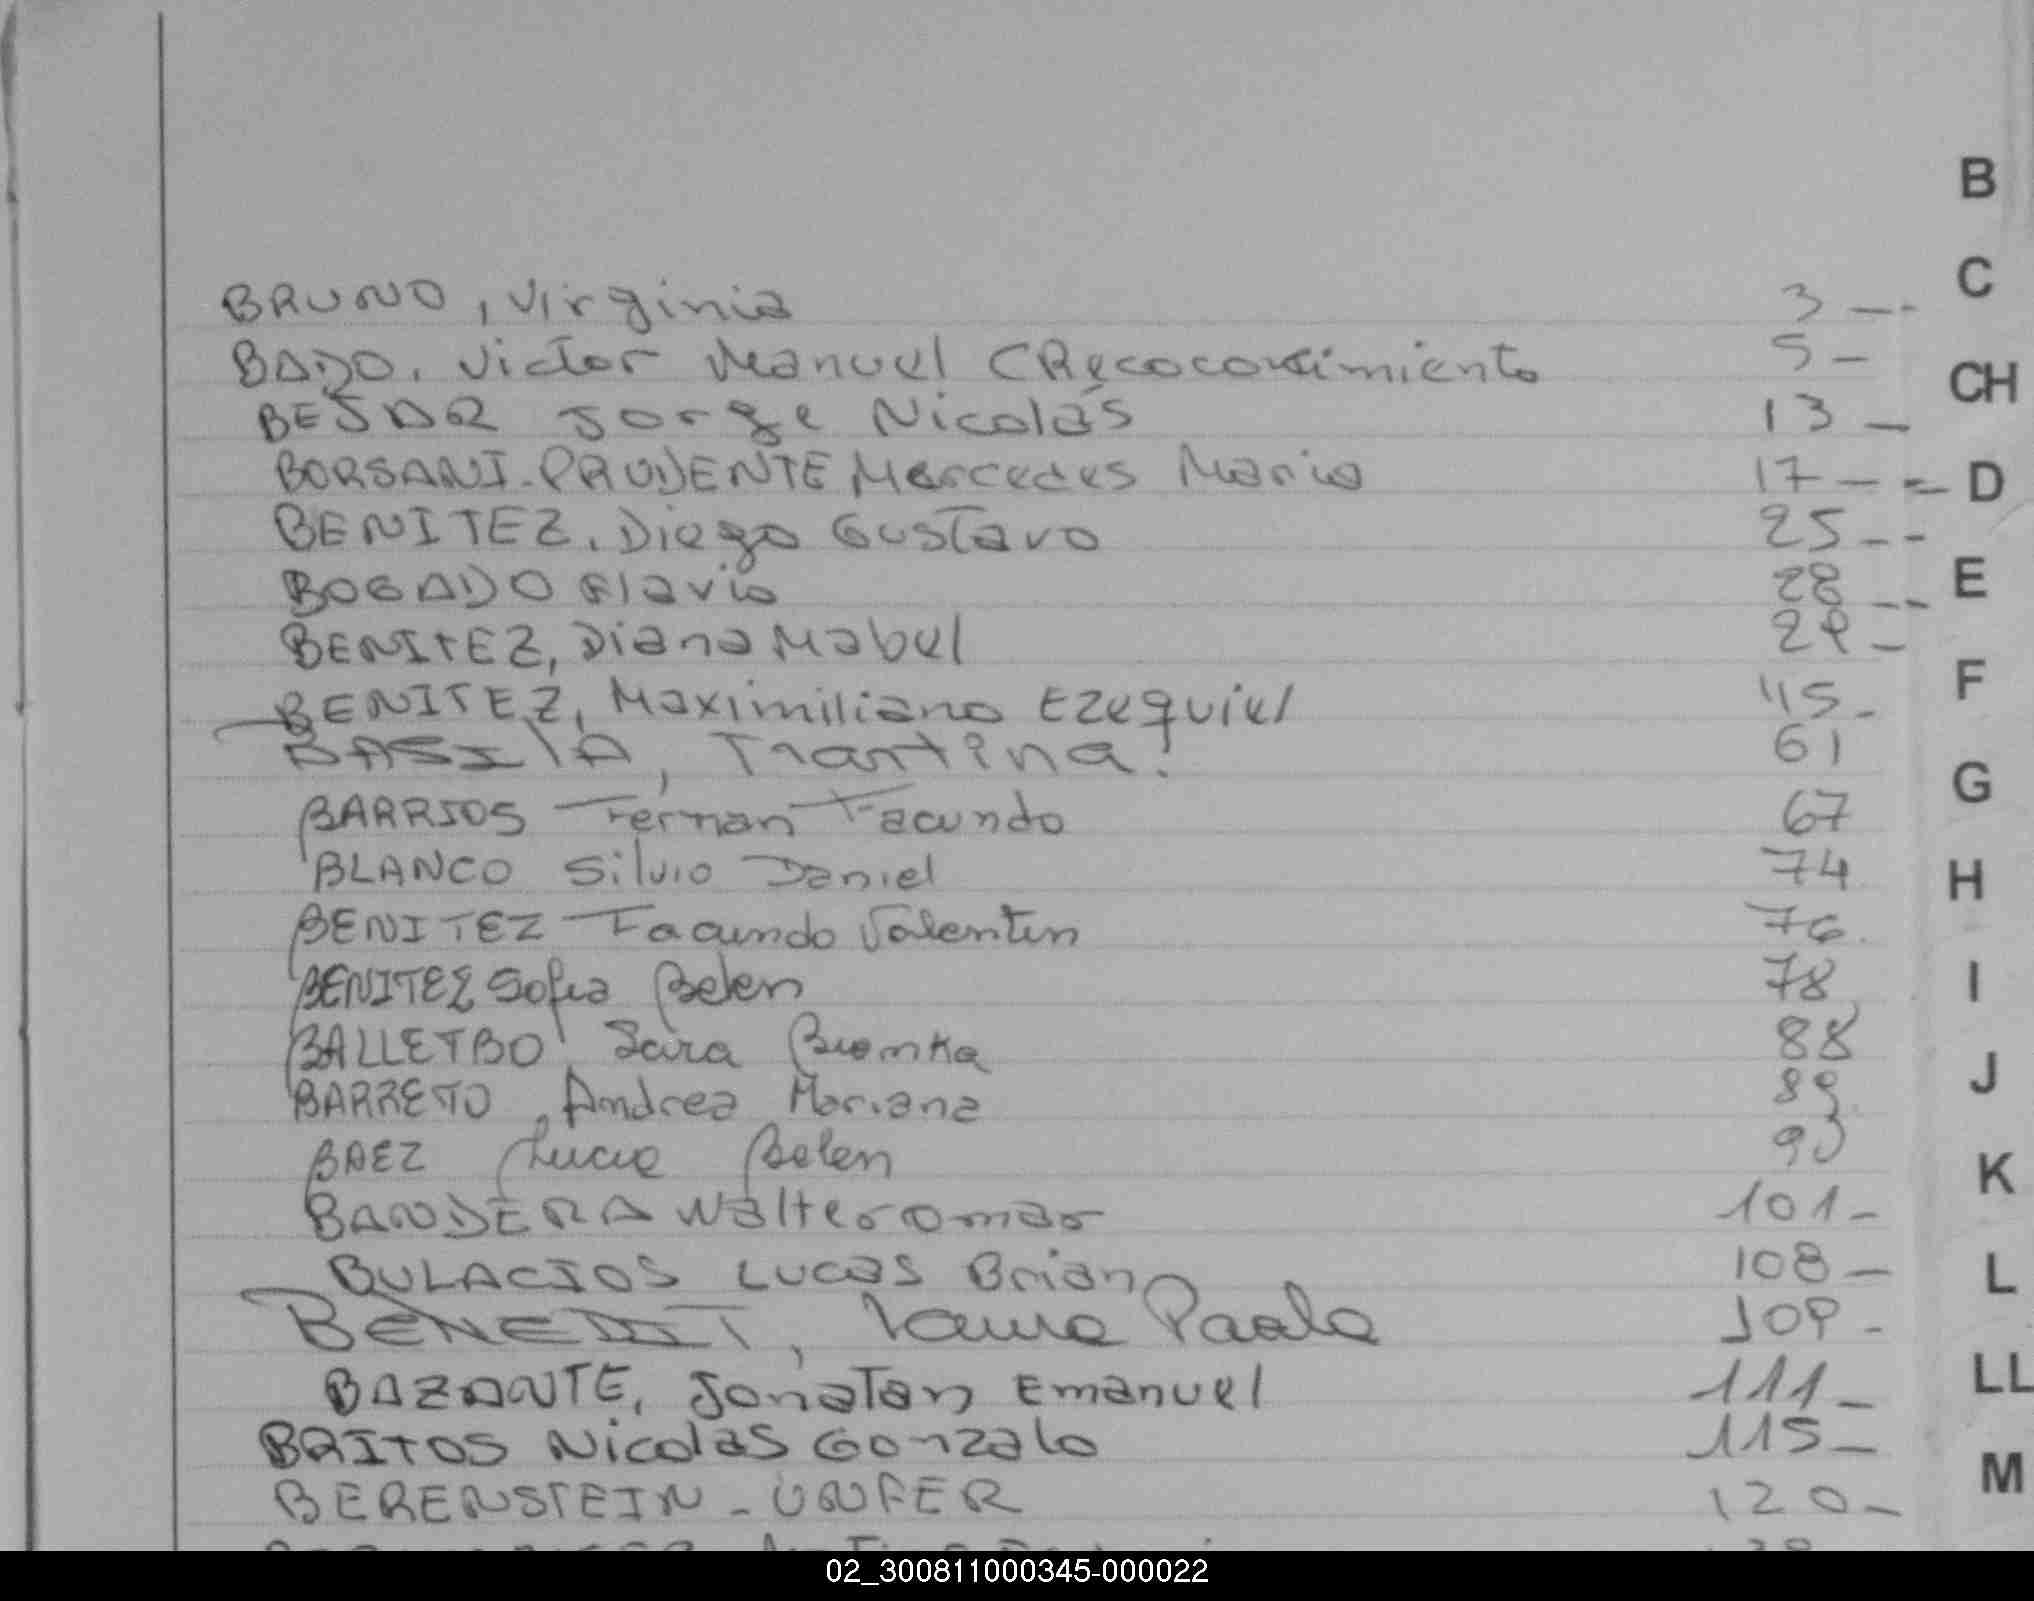 B
C
BRUNO, Virginia 3 --
BADO, Victor Manuel (Recoconsimiento 5 -
CH
BEJAR Jorge Nicolás 13 -
BORSANI-PRUDENTE Mercedes Maria 17 - - D
BENITEZ, Diego Gustavo 25 --
BOGADO Flavio 28 -- E
BENITEZ, Diana Mabel 29 -
F
BENITEZ, Maximiliano Ezequiel 45 -
BASILA, Martina. 61
G
BARRIOS Fernan Facundo 67
BLANCO Silvio Daniel 74
H
BENITEZ Facundo Valentin 76.
BENITEZ Sofia Belen 78
I
BALLETBO Sara Bianka 88
J
BARRETO, Andrea Mariana 89.
BAEZ Lucia Belen 90
K
BANDERA Walter Omar 101 -
BULACIOS Lucas Brian 108 -
L
BENEDIT, Laura Paola 109 -
LL
BAZANTE, Jonatan Emanuel 111 -
BRITOS Nicolas Gonzalo 115 -
M
BERENSTEIN - UNFER 120 -
02_300811000345-000022